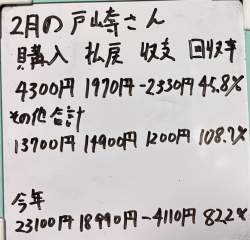 2月の戸崎さん
購入 払戻 収支 回収率
4300円 1970円 -2330円 45.8%
その他合計
13700円 14900円 1200円 108.7%
今年
23100円 18990円 -4110円 82.2%